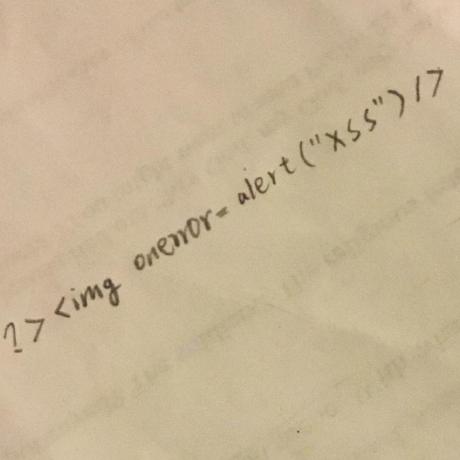 1><img onerror=alert("xss")/>